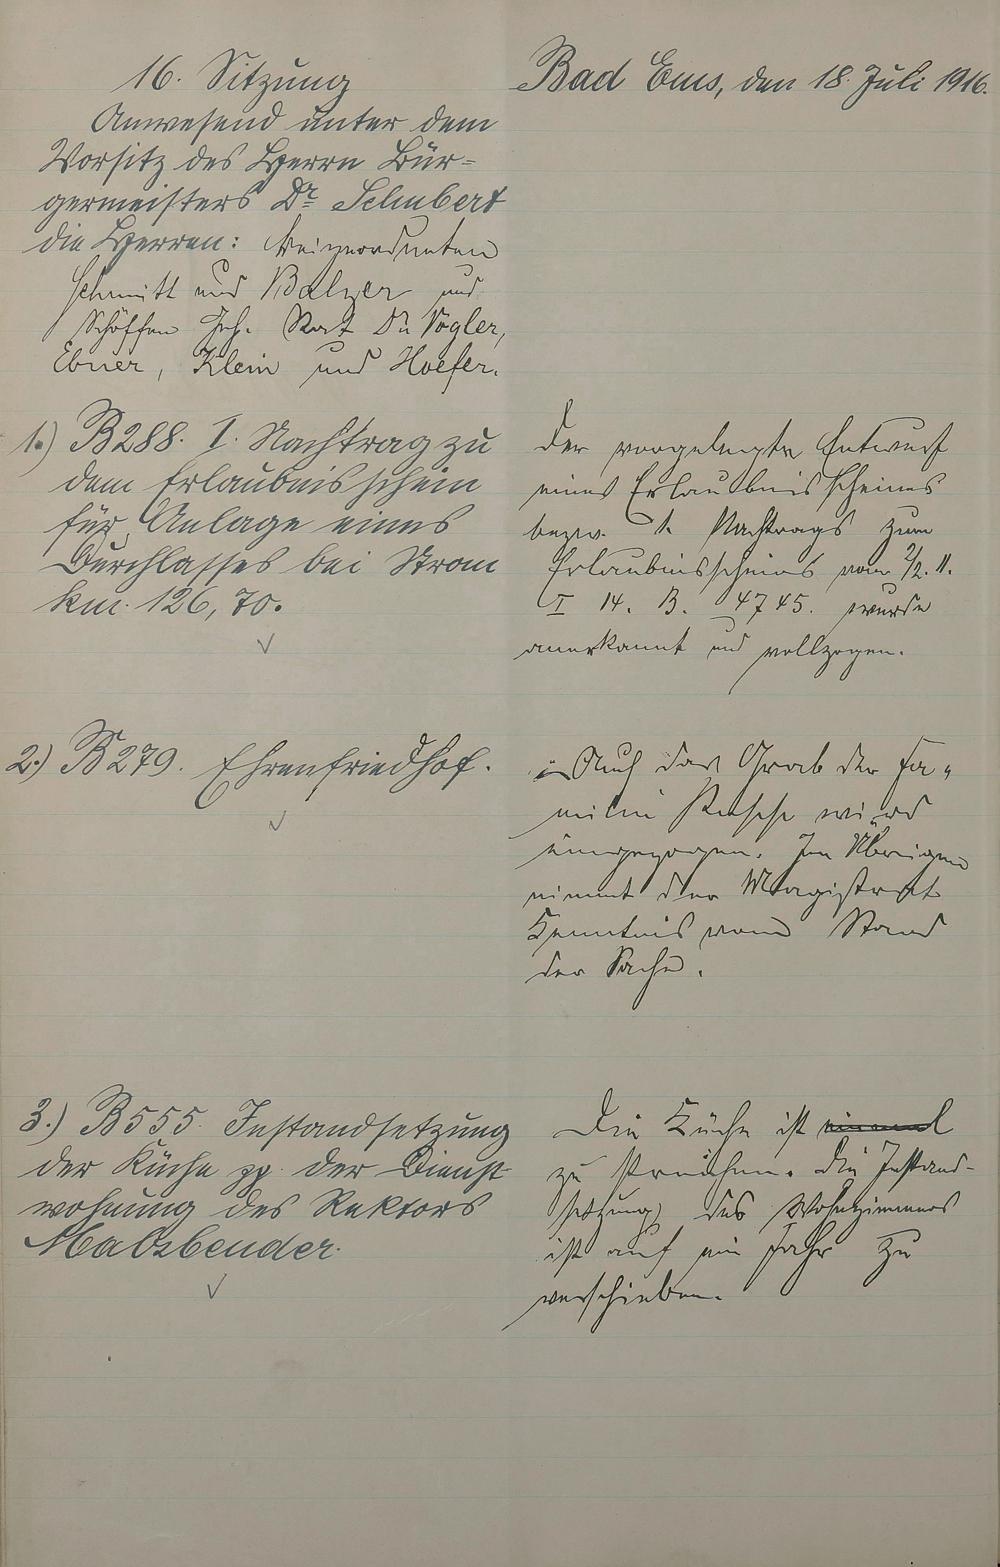 16. Sitzung
Anwesend unter dem
Vorsitz des Herrn Bür-
germeisters Dr. Schubert
die Herren: Beigeordneten
Schmitt und Balzer und
Schöffen Geh. Rat Dr. Vogler,
Ebner, Klein und Hoefer.
Bad Ems, den 18. Juli 1916.
1.) B288. I. Nachtrag zu
dem Erlaubnisschein
für Anlage eines
Durchlasses bei Strom
km. 126,70.
Der vorgelegte Entwurf
eines Erlaubnisscheines
bezw. 1. Nachtrags zum
Erlaubnisschein vom 2/2. 11.
I 14. B. 4745. wurde
anerkannt und vollzogen.
2.) B279. Ehrenfriedhof.
Auch das Grab der Fa-
milie wird
eingezogen. Im Übrigen
nimmt der Magistrat
Kenntnis vom Stand
der Sache.
3.) B555. Instandsetzung
der Küche pp. der Dienst
wohnung des Rektors
Malzbender.
Die Küche ist einmal
zu streichen. Die Instand-
setzung des Wohnzimmers
ist auf ein Jahr zu
verschieben.